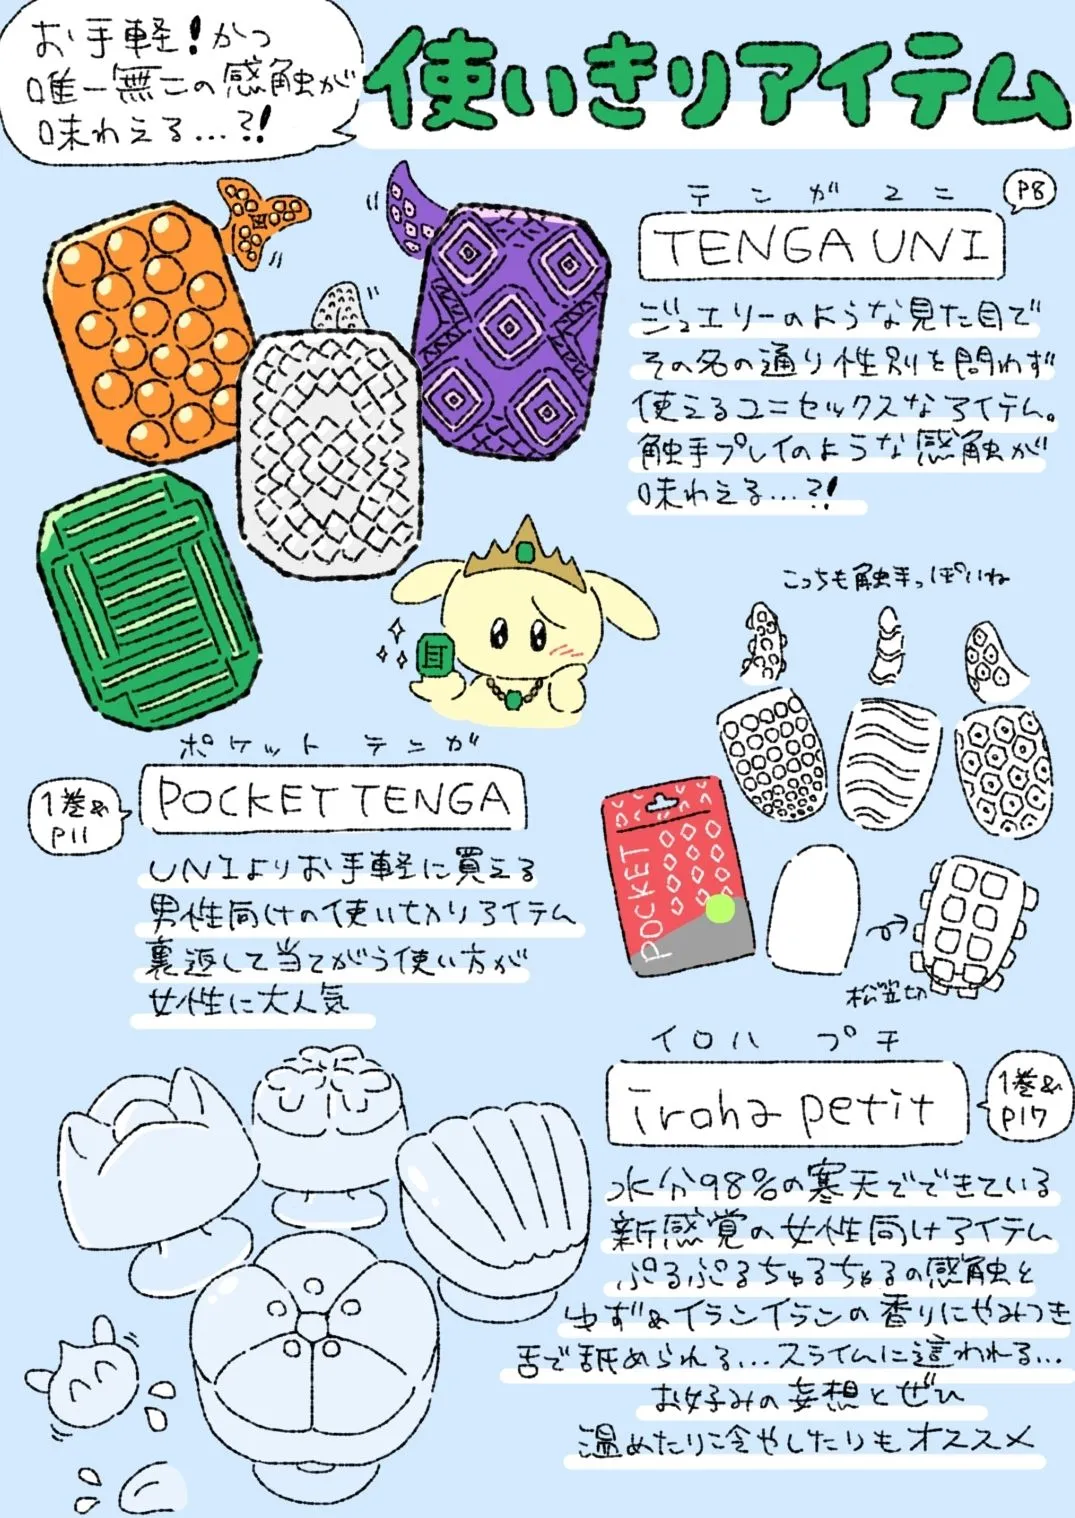 お手軽!かつ
唯一無二の感触が
味わえる...?!
使いきりアイテム
テンガユニ
P8
TENGA UNI
ジュエリーのような見た目で
その名の通り性別を問わず
使えるユニセックスなアイテム。
触手プレイのような感触が
味わえる...?!
こっちも触手っぽいね
ポケット テンガ
1巻&
P11
POCKET TENGA
UNIよりお手軽に買える
男性向けの使いきりアイテム
裏返して当てがう使い方が
女性に大人気
POCKET
松笠切
イロハ プチ
iroha petit
1巻&
P17
水分98%の寒天でできている
新感覚の女性向けアイテム
ぷるぷるちゅるちゅるの感触と
ゆず&イランイランの香りにやみつき
舌で舐められる...スライムに這われる...
お好みの妄想とぜひ
温めたり冷やしたりもオススメ